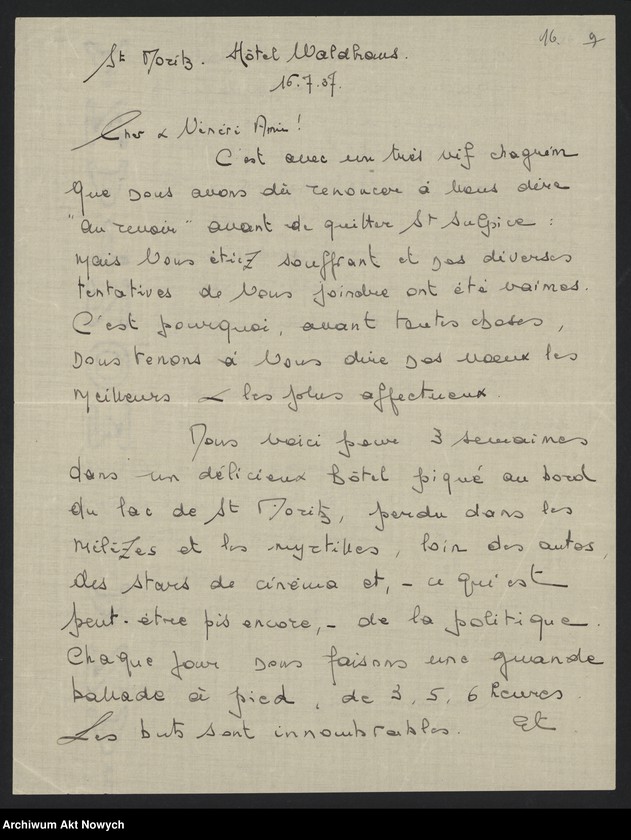 16. 9
St Moritz. Hôtel Waldhaus.
16.7.37.
Cher & Vénéré Ami !
C'est avec un très vif chagrin
que nous avons dû renoncer à Vous dire
"au revoir" avant de quitter St Sulpice :
mais Vous étiez souffrant et nos diverses
tentatives de Vous joindre ont été vaines.
C'est pourquoi, avant toutes choses,
nous tenons à Vous dire nos voeux les
meilleurs & les plus affectueux.
Nous voici pour 3 semaines
dans un délicieux hôtel piqué au bord
du lac de St Moritz, perdu dans les
mélèzes et les myrtilles, loin des autos,
des stars de cinéma et, - ce qui est
peut-être pis encore, - de la politique.
Chaque jour nous faisons une grande
ballade à pied, de 3, 5, 6 heures.
Les buts sont innombrables. Et
Archiwum Akt Nowych